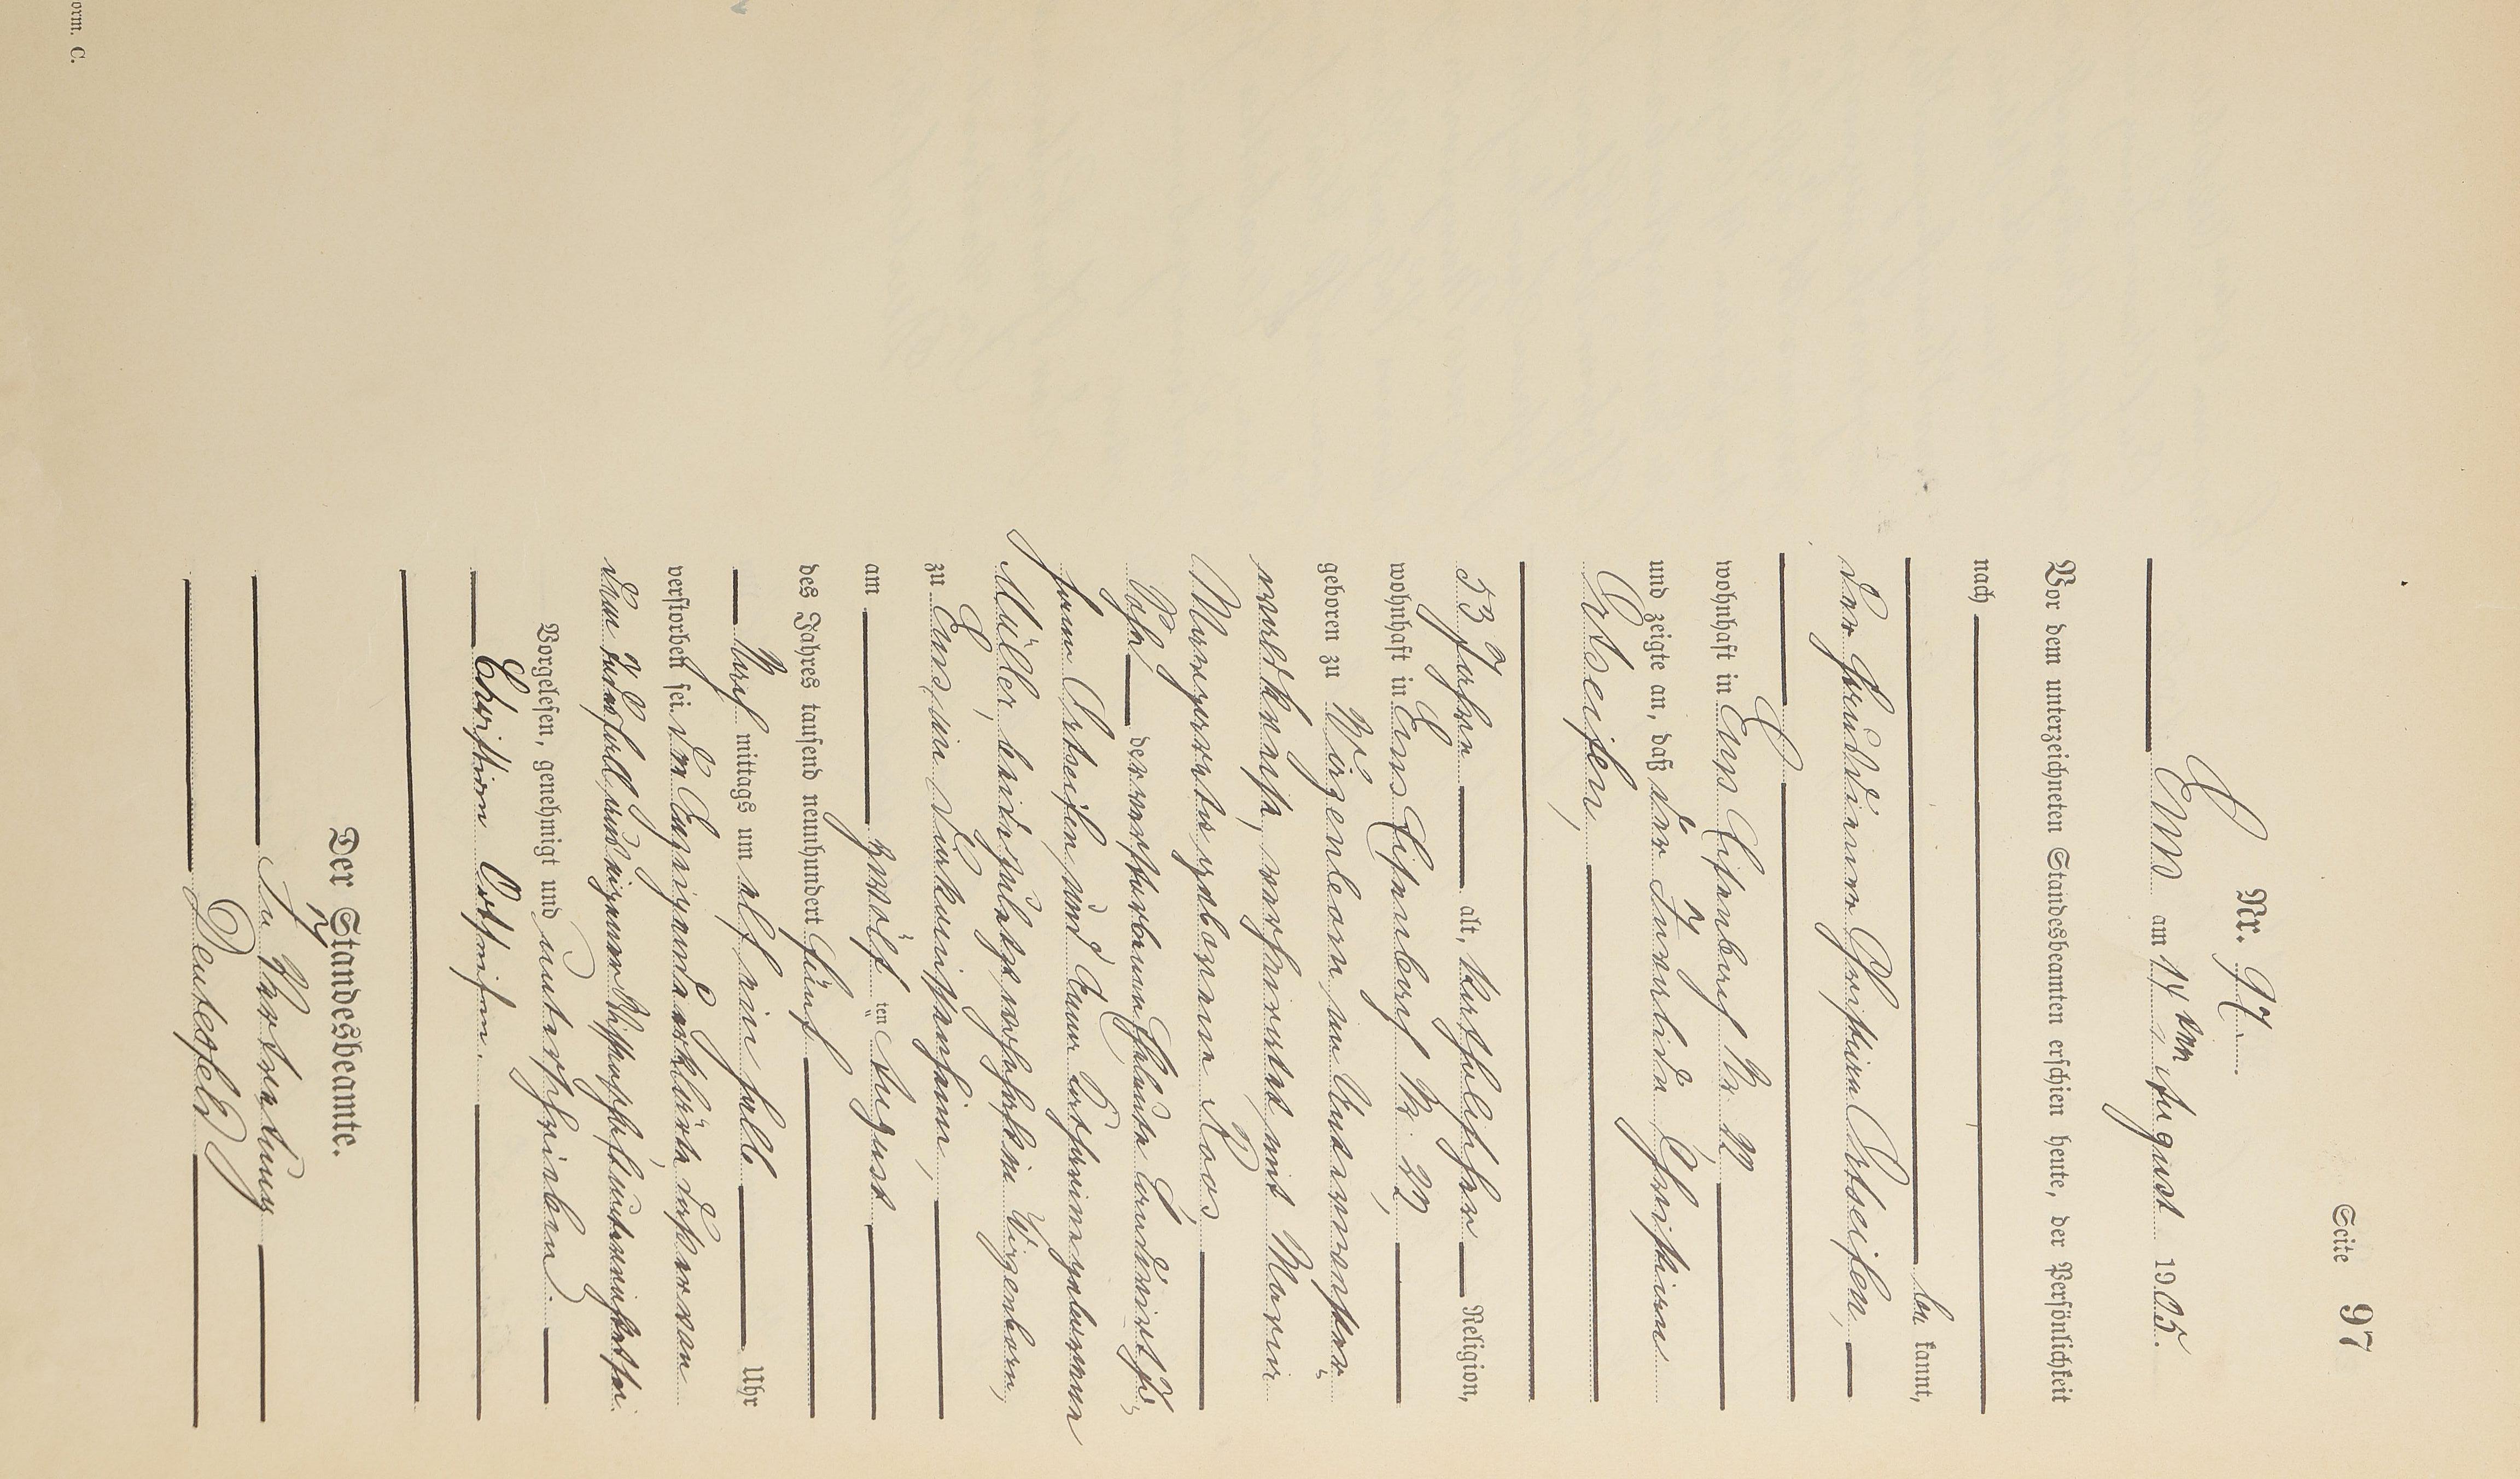 Seite 97
Nr. 97.
Ems am 14ten August 1905.
Vor dem unterzeichneten Standesbeamten erschien heute, der Persönlichkeit
nach
be kannt,
der Christian Ortseifen,
wohnhaft in Ems Nr. 22
und zeigte an, daß der Invalide Christian
Ortseifen,
53 Jahre alt, katholischer Religion,
wohnhaft in Ems Nr. 22,
geboren zu Wirgenborn, im Unterwester-
waldkreise, verheiratet mit Maria
Margareta geborene Roos,
Sohn der verstorbenen Eheleute Landwirth
Ortseifen, und Anna geborenen
Müller, beide zuletzt wohnhaft in Wirgenborn,
zu Ems, im Krankenhause,
am zwölf ten August
des Jahres tausend neunhundert fünf
Nach mittags um elf ein halb Uhr
verstorben sei. Der Anzeigende erklärte, daß er von
dem Todesfall aus eigener Wissenschaft unterrichtet sei
Vorgelesen, genehmigt und unterschrieben.
Christian Ortseifen.
Der Standesbeamte.
In Vertretung
orm. C.